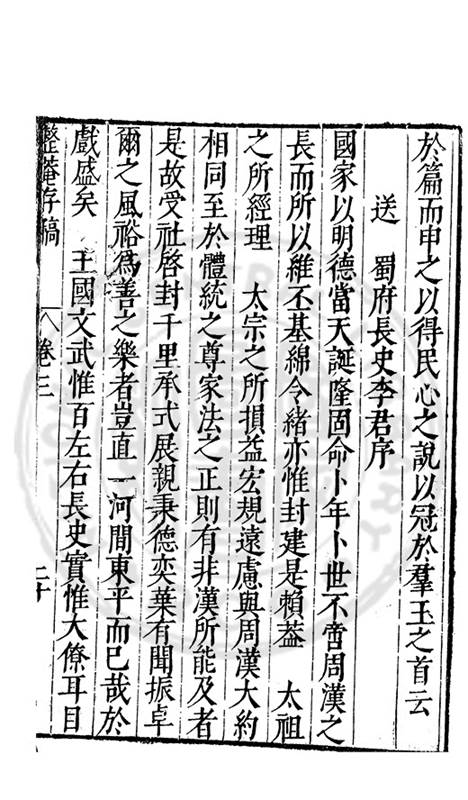 於篇而申之以得民心之說以冠於羣玉之首云
送 蜀府長史李君序
國家以明德當天誕隆固命卜年卜世不啻周漢之
長而所以維丕基綿令緒亦惟封建是賴葢 太祖
之所經理 太宗之所損益宏規遠慮與周漢大約
相同至於體統之尊家法之正則有非漢所能及者
是故受社啓封千里承式展親秉德奕葉有聞振卓
爾之風裕爲善之樂者豈直一河間東平而已哉於
戲盛矣 王國文武惟百左右長史實惟大僚耳目
整菴存稿 卷三